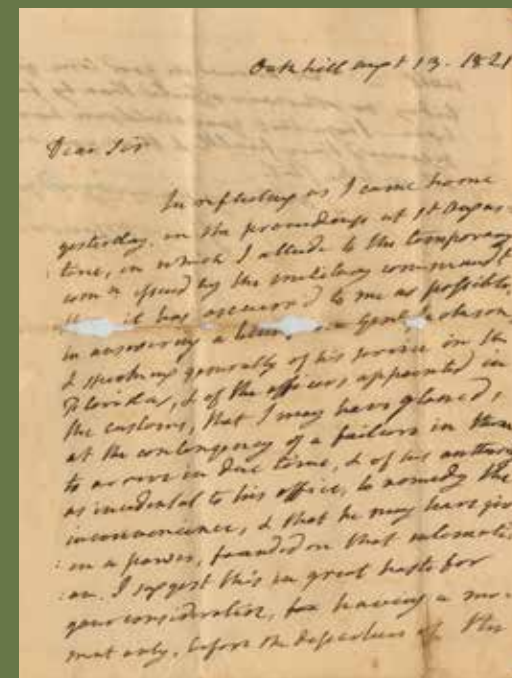 Oak hill augt 13. 1821
Dear Sir
In reflecting as I came home
yesterday, on the proceedings at St Augus-
tine, in which I allude to the temporary
comn issued by the military command,t
it has occurred to me as possible,
in answering a Genl Jackson,
& speaking generally of his service in the
Floridas, & of the officers, appointed in
the customs, that I may have glanced,
at the contingency of a failure in them
to arrive in due time, & of his authority
as incidental to his office, to remedy the
inconvenience, & that he may have giv
: en a power, founded on that intimati
: on. I suggest this in great haste for
your consideration, having a mo-
ment only, before the departure of the